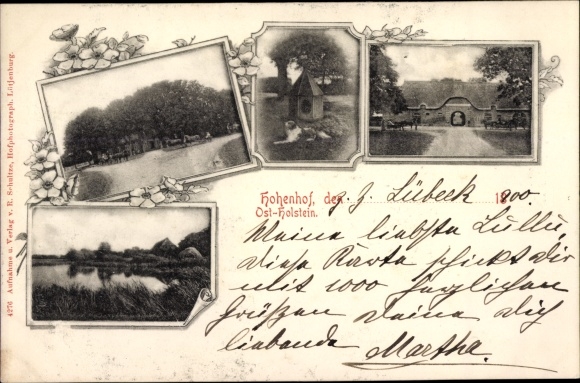 4276 Aufnahme u. Verlag v. R. Schultze, Hofphotograph. Lütjenburg.
Hohenhof, den z. Z. Lübeck 1900.
Ost-Holstein.
Meine liebste Lullu,
diese Karte schickt dir
mit 1000 herzlichen
Grüßen deine dich
liebende Martha.